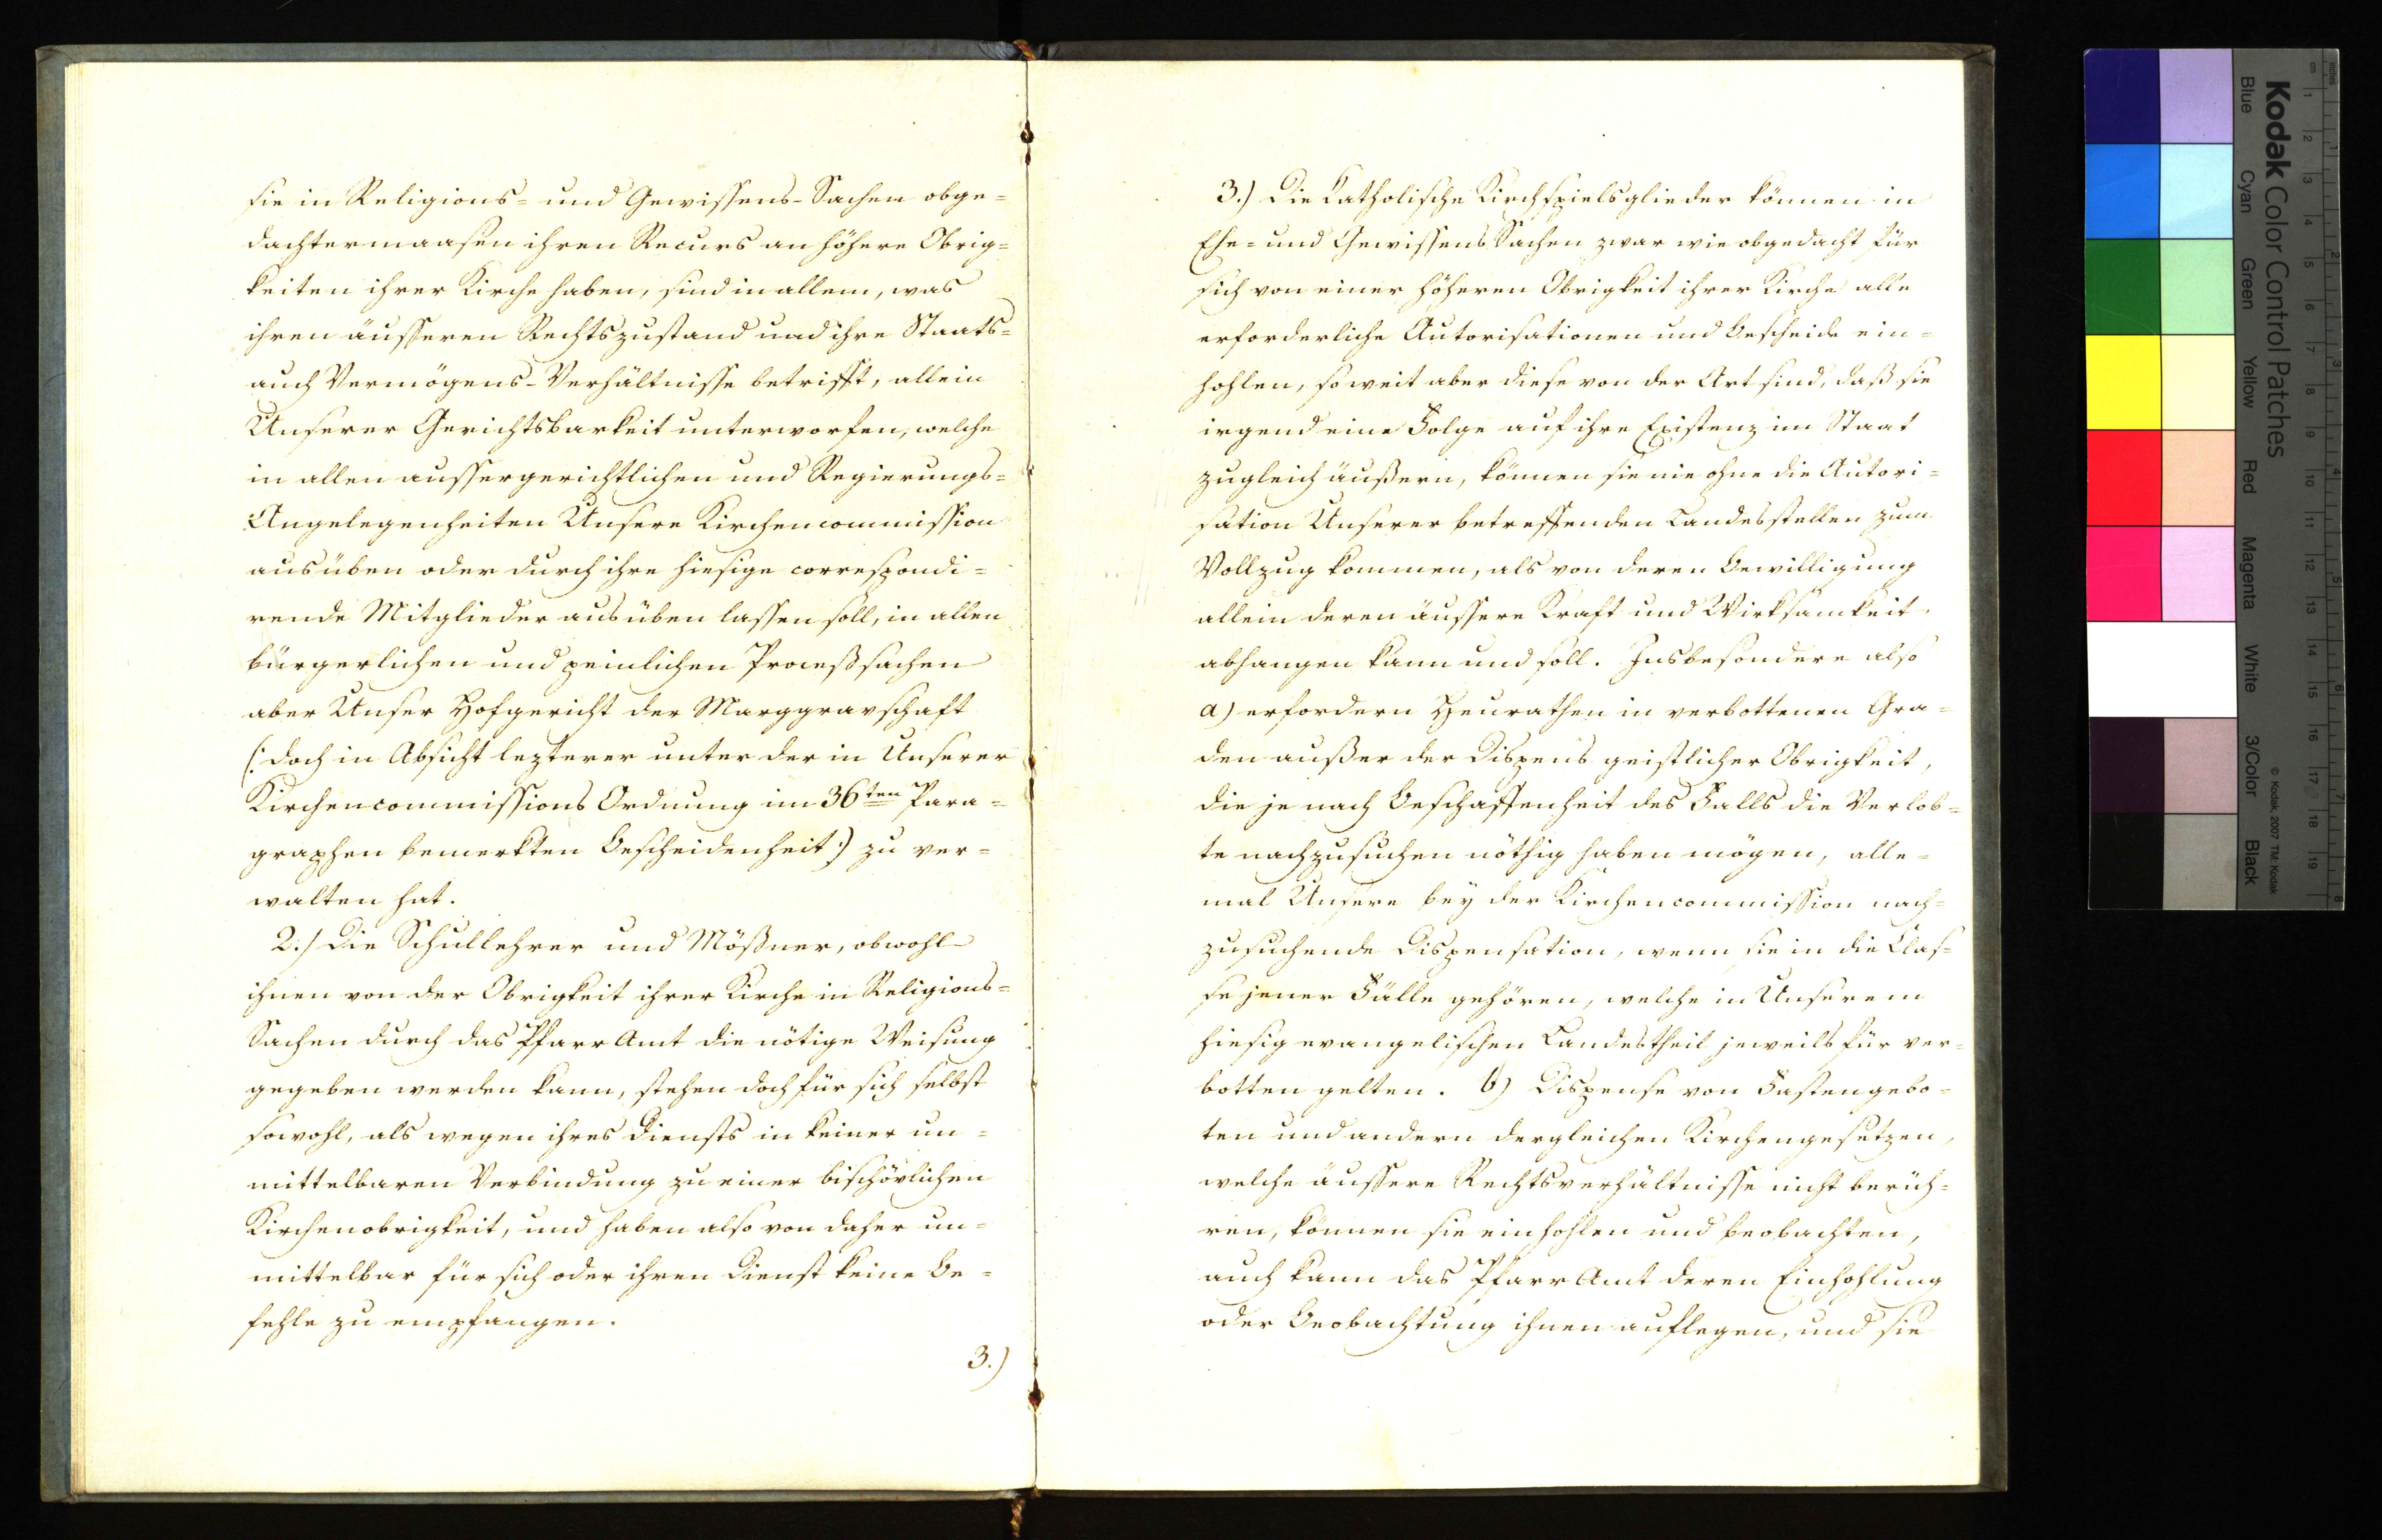 sie in Religions= und Gewissens-Sachen obge=
dachtermaasen ihren Recurs an höhere Obrig=
keiten ihrer Kirche haben, sind in allem, was
ihren äusseren Rechtszustand und ihre Staats=
auch Vermögens-Verhältnisse betrifft, allein
Unserer Gerichtsbarkeit unterworfen, welche
in allen aussergerichtlichen und Regierungs=
Angelegenheiten Unsere Kirchencommission
ausüben oder durch ihre hiesige correspondi=
rende Mitglieder ausüben lassen soll, in allen
bürgerlichen und peinlichen Proceßsachen
aber Unser Hofgericht der Marggravschaft
(: doch in Absicht lezterer unter der in Unserer
Kirchencommissions Ordnung im 36ten Para=
graphen bemerkten Bescheidenheit :) zu ver=
walten hat.
2.) Die Schullehrer und Mößner, obwohl
ihnen von der Obrigkeit ihrer Kirche in Religions=
Sachen durch das Pfarr Amt die nötige Weisung
gegeben werden kann, stehen doch für sich selbst
sowohl, als wegen ihres Diensts in keiner un=
mittelbaren Verbindung zu einer bischövlichen
Kirchenobrigkeit, und haben also von daher un=
mittelbar für sich oder ihren Dienst keine Be=
fehle zu empfangen.
3.)
3.) Die Katholische Kirchspielsglieder können in
Ehe= und Gewissens Sachen zwar wie obgedacht für
sich von einer höheren Obrigkeit ihrer Kirche alle
erforderliche Autorisationen und Bescheide ein=
hohlen, so weit aber diese von der Art sind, daß sie
irgend eine Folge auf ihre Existenz im Staat
zugleich äußern, können sie nie ohne die Autori=
sation Unserer betreffenden Landesstellen zum
Vollzug kommen, als von deren Bewilligung
allein deren äussere Kraft und Wirksamkeit
abhangen kann und soll. Insbesondere also
a) erfordern Heurathen in verbottenen Gra=
den außer der Dispens geistlicher Obrigkeit,
die je nach Beschaffenheit des Falls die Verlob=
te nachzusuchen nöthig haben mögen, alle=
mal Unsere bey der Kirchencommission nach=
zusuchende Dispensation, wenn sie in die Clas=
se jener Fälle gehören, welche in Unserem
hiesig evangelischen Landestheil jeweils für ver=
botten gelten. b) Dispense von Fastengebo=
ten und andern dergleichen Kirchengesetzen,
welche äussere Rechtsverhältnisse nicht berüh=
ren, können sie einhohlen und beobachten,
auch kann das Pfarr Amt deren Einhohlung
oder Beobachtung ihnen auflegen, und sie
Kodak Color Control Patches
Blue Cyan Green Yellow Red Magenta White 3/Color Black
© Kodak, 2007 TM: Kodak
inches 1 2 3 4 5 6 7 8
cm 1 2 3 4 5 6 7 8 9 10 11 12 13 14 15 16 17 18 19